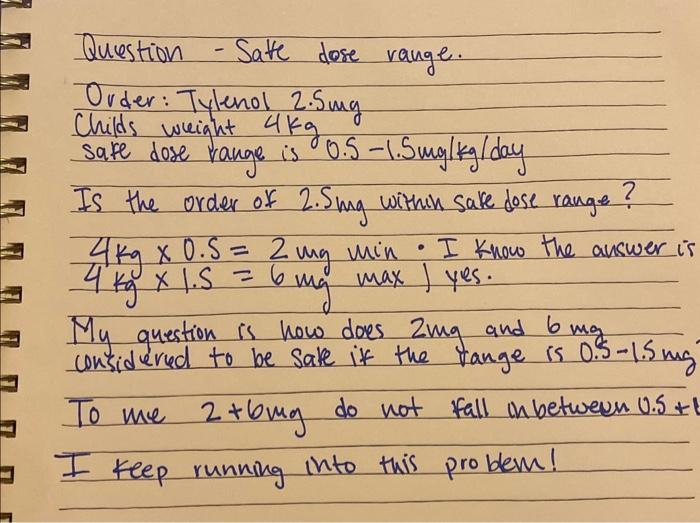 Question - Safe dose range.
Order: Tylenol 2.5mg
Childs weight 4kg
safe dose range is 0.5-1.5mg/kg/day
Is the order of 2.5mg within safe dose range?
4kg x 0.5 = 2 mg min • I know the answer is
4 kg x 1.5 = 6 mg max yes.
My question is how does 2mg and 6 mg
considered to be safe if the range is 0.5-1.5mg
To me 2+6mg do not fall inbetween 0.5 +
I keep running into this problem!